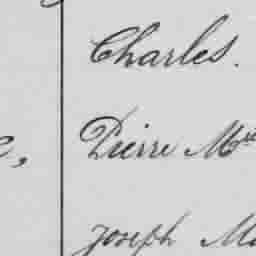 Charles.
e, Pierre M
Joseph